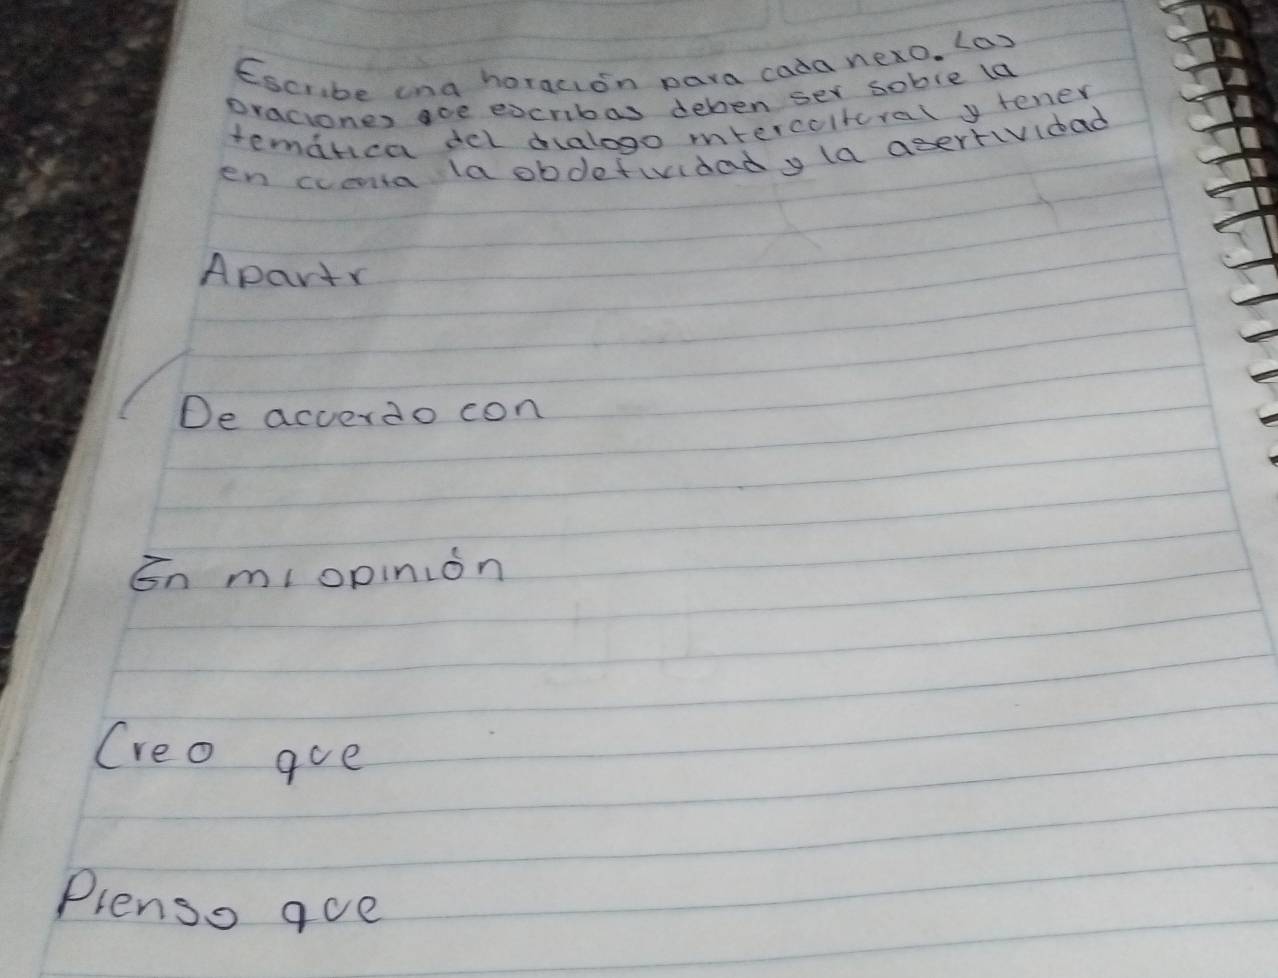 Escribe una horación para cada nexo. Las
oraciones que escribas deben ser sobre la
temática del dialogo intercultural y tener
en cuenta la obdetividad y la asertividad
Apartr
De acuerdo con
En mi opinión
Creo que
Pienso que